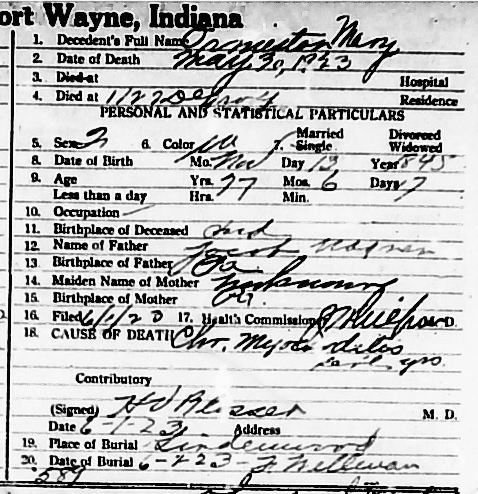 ort Wayne, Indiana
1. Decedent's Full Name Ormeston, Mary
2. Date of Death May 30, 1923
3. Died at Hospital
4. Died at 1122 DeGroff Residence
PERSONAL AND STATISTICAL PARTICULARS
Married Divorced
5. Sex 6. Color W 7. Single Widowed
8. Date of Birth Mo. Nov Day 13 Year 1845
9. Age Yrs. 77 Mos. 6 Days 17
Less than a day Hrs. Min.
10. Occupation —
11. Birthplace of Deceased Ind
12. Name of Father Jacob Wagner
13. Birthplace of Father Pa
14. Maiden Name of Mother Unknown
15. Birthplace of Mother
16. Filed 6/1/23 17. Health Commission M. D.
18. CAUSE OF DEATH Chr. Myocarditis
yrs
Contributory
(Signed) M. D.
Date 6-1-23 Address
19. Place of Burial Lindenwood
20. Date of Burial 6-2-23-
587